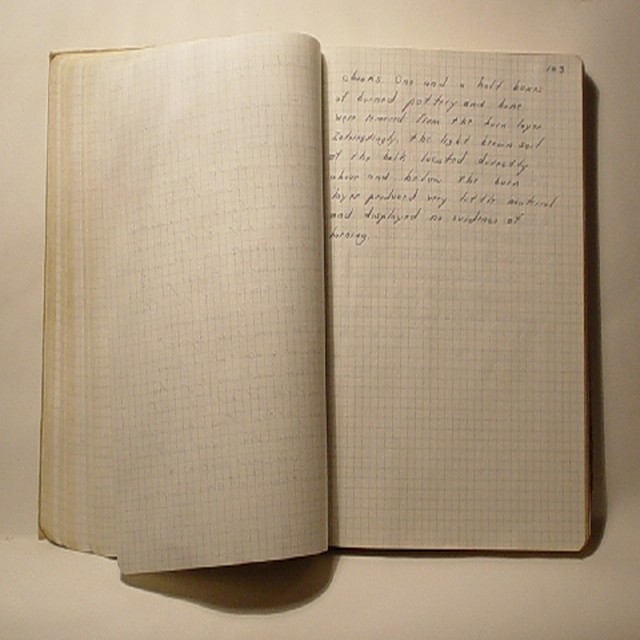 103
shows. One and a half boxes
of burned pottery and bone
were removed from the burn layer.
Interestingly, the light brown soil
of the balk located directly
above and below the burn
layer produced very little material
and displayed no evidence of
burning.